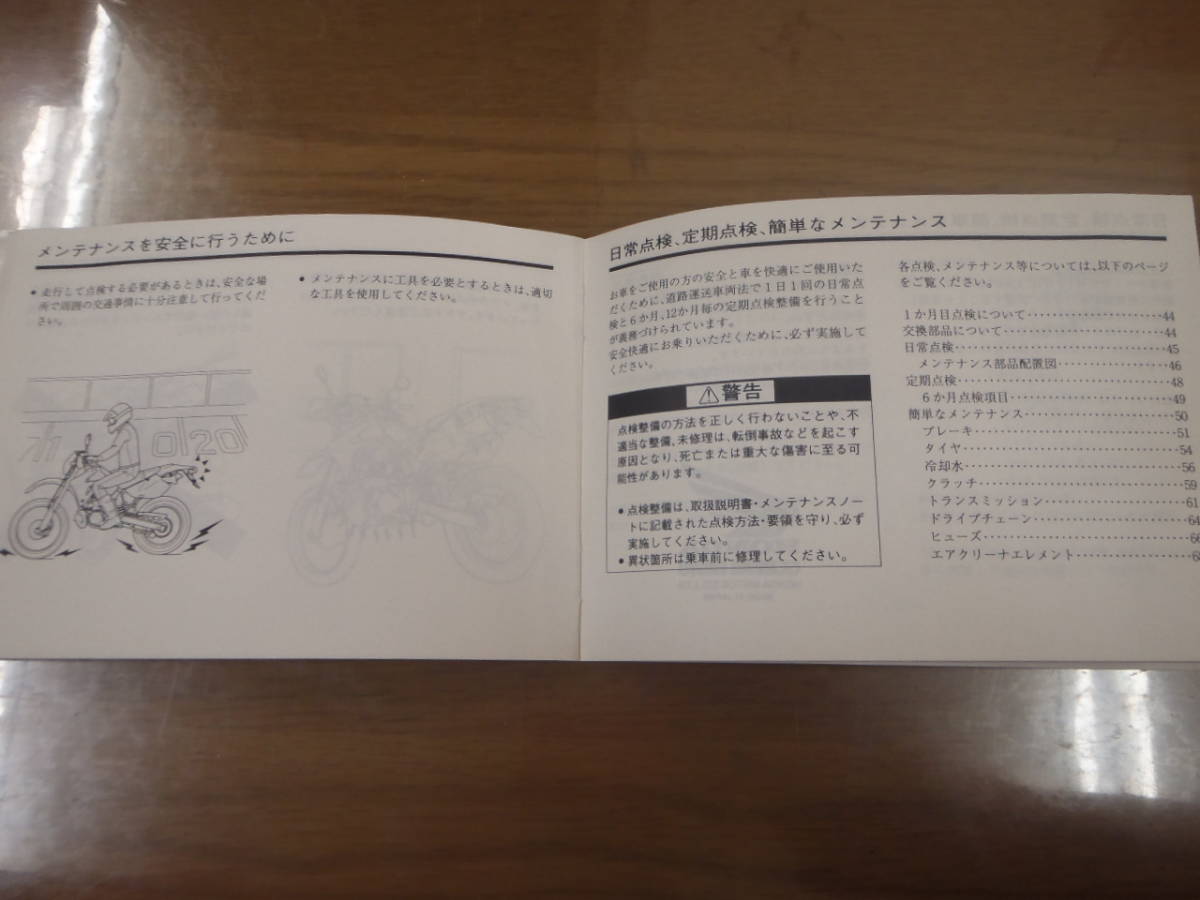 メンテナンスを安全に行うために
● 走行して点検する必要があるときは、安全な場
所で周囲の交通事情に十分注意して行ってくだ
さい。
● メンテナンスに工具を必要とするときは、適切
な工具を使用してください。
日常点検、定期点検、簡単なメンテナンス
お車をご使用の方の安全と車を快適にご使用いた
だくために、道路運送車両法で1日1回の日常点
検と6か月、12か月毎の定期点検整備を行うこと
が義務づけられています。
安全快適にお乗りいただくために、必ず実施して
ください。
⚠警告
点検整備の方法を正しく行わないことや、不
適当な整備、未修理は、転倒事故などを起こす
原因となり、死亡または重大な傷害に至る可
能性があります。
● 点検整備は、取扱説明書・メンテナンスノー
トに記載された点検方法・要領を守り、必ず
実施してください。
● 異状箇所は乗車前に修理してください。
各点検、メンテナンス等については、以下のページ
をご覧ください。
1か月目点検について························44
交換部品について····························44
日常点検····································45
メンテナンス部品配置図····················46
定期点検····································48
6か月点検項目····························49
簡単なメンテナンス··························50
ブレーキ··································51
タイヤ····································54
冷却水····································56
クラッチ··································59
トランスミッション························61
ドライブチェーン··························64
ヒューズ··································
エアクリーナエレメント····················